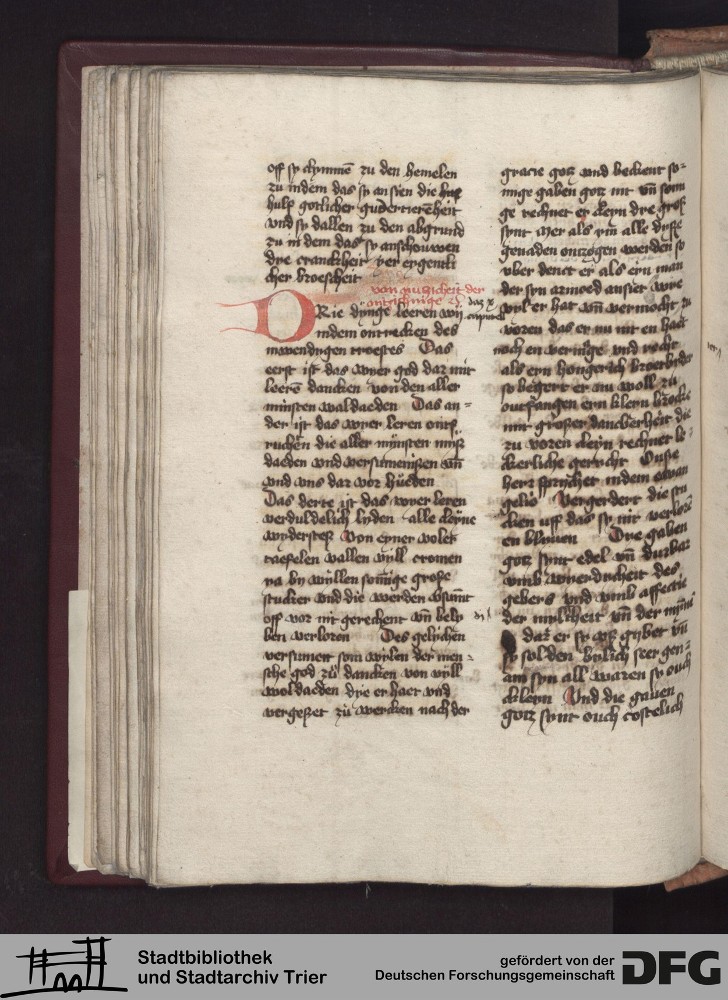 off sy clymmē zu den hemelen
zu indem das sy ansien die
hulp gotlicher guedertierēheit
vnd sy dallen zu den abgrund
zu in dem das sy anschouwen
dye cranckheit yer eygentli
cher broescheit
von der
das x
DRie dynge leeren wij
indem ontrecken des
inwendigen troestes Das
eerst ist das wyer god dar mit
leerē dancken von den aller
minsten waldaeden Das an=
der ist das wyer leren
die aller mynsten
daeden vnd versumenißen vn̄
vnd vns dar vor hueden
Das derte ist das wyer leren
verduldelich lyden alle cleyne
wydersteß Von eyner
taefelen vallen vyll cromen
ya by wyllen somige große
stucker vnd die werden
off vor nit gerechent vn̄ bely
ben verloren Des gelychen
versumet som wylen der men=
sche god zu dancken von vyll
woldaeden dye er haet vnd
vergeßet zu wercken nach der
gracie gotz vnd bekent so=
inige gaben gotz nit vn̄ som
ge rechnet er cleyn dye groß
synt mer als ym alle dyße
genaden ontzogen werden so
vber denct er als eyn man
der syn armoed ansiet wye
vyl er hat vn̄ vermocht zu
voren das er nu nit en haet
noch en vermuge vnd recht
als eyn hongerich
so begert er nu woll zu
ontfangen eyn kleyn
mit großer danckberheit die
zu voren cleyn rechnet
ckerliche gericht Onse
herr sprychet indem ewan
gelio Vergerdert die stu
cken uff das sy nit verlorē
en blyuen Dye gaben
gotz synt edel vn̄ durbar
vmb wyerdicheit des
gebers vnd vmb affectie
der myltheit vn̄ der
dar er sy vß gybet vn̄
sy solden bylich seer gen=
am syn all waren sy ouch
ckleyn Vnd die gauen
gotz synt ouch costelich
Stadtbibliothek
und Stadtarchiv Trier
gefördert von der
Deutschen Forschungsgemeinschaft
DFG